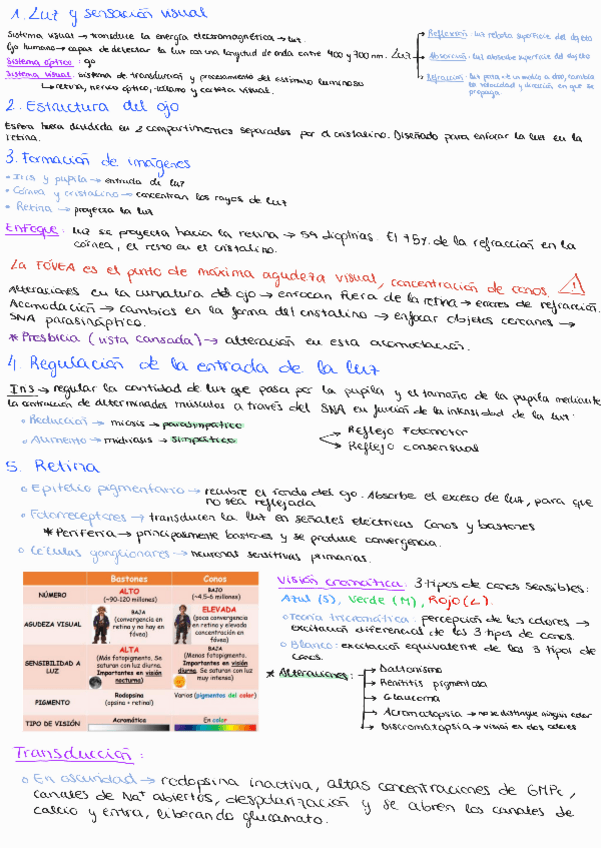 1. Luz y sensación visual
Sistema visual → transduce la energía electromagnética → luz.
Ojo humano → capaz de detectar la luz con una longitud de onda entre 400 y 700 nm.
Sistema óptico: ojo
Sistema visual: sistema de transducción y procesamiento del estímulo luminoso
↳ retina, nervio óptico, tálamo y corteza visual.
Luz
→ Reflexión: luz rebota superficie del objeto
→ Absorción: luz absorbe superficie del objeto
→ Refracción: luz pasa de un medio a otro, cambia
su velocidad y dirección en que se
propaga
2. Estructura del ojo
Esfera hueca dividida en 2 compartimentos separados por el cristalino. Diseñado para enfocar la luz en la
retina.
3. Formación de imágenes
• Iris y pupila → entrada de luz
• Córnea y cristalino → concentran los rayos de luz
• Retina → proyecta la luz
Enfoque: luz se proyecta hacia la retina → 59 dioptrías. El 75% de la refracción en la
córnea, el resto en el cristalino.
La FÓVEA es el punto de máxima agudeza visual, concentración de conos. !
Alteraciones en la curvatura del ojo → enfocan fuera de la retina → errores de refracción.
Acomodación → cambios en la forma del cristalino → enfocar objetos cercanos →
SNA parasimpático.
* Presbicia (vista cansada) → alteración en esta acomodación.
4. Regulación de la entrada de la luz
Iris → regular la cantidad de luz que pasa por la pupila y el tamaño de la pupila mediante
la contracción de determinados músculos a través del SNA en función de la intensidad de la luz:
◦ Reducción → miosis → parasimpático
◦ Aumento → midriasis → simpático
Reflejo Fotomotor
Reflejo consensual
5. Retina
◦ Epitelio pigmentario → recubre el fondo del ojo. Absorbe el exceso de luz, para que
no sea reflejada
◦ Fotorreceptores → transducen la luz en señales eléctricas Conos y bastones
* Periferia → principalmente bastones y se produce convergencia.
◦ Células ganglionares → neuronas sensitivas primarias.
Bastones Conos
NÚMERO
ALTO
(~90-120 millones)
BAJO
(~4.5-6 millones)
AGUDEZA VISUAL
BAJA
(convergencia en
retina y no hay en
fóvea)
ELEVADA
(poca convergencia
en retina y elevada
concentración en
fóvea)
SENSIBILIDAD A
LUZ
ALTA
(Más fotopigmento. Se
saturan con luz diurna.
Importantes en visión
nocturna)
BAJA
(Menos fotopigmento.
Importantes en visión
diurna. Se saturan con luz
muy intensa)
PIGMENTO
Rodopsina
(opsina + retinal)
Varios (pigmentos del color)
TIPO DE VISIÓN
Acromática
En color
Visión cromática: 3 tipos de conos sensibles:
Azul (S), Verde (M), Rojo (L).
◦ Teoría tricromática: percepción de los colores →
excitación diferencial de los 3 tipos de conos.
◦ Blanco: excitación equivalente de los 3 tipos de
conos.
* Alteraciones:
→ Daltonismo
→ Renititis pigmentosa
→ Glaucoma
→ Acromatopsia → no se distingue ningún color
→ Discromatopsia → visión en dos colores
Transducción:
◦ En oscuridad → rodopsina inactiva, altas concentraciones de GMPc,
canales de Na⁺ abiertos, despolarización y se abren los canales de
calcio y entra, liberando glutamato.